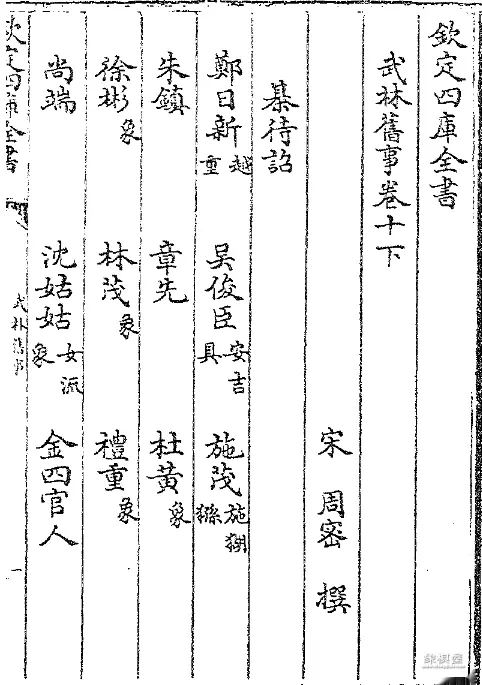 欽定四庫全書
武林舊事卷十下
宋 周密 撰
棊待詔
鄭日新 越重 吳俊臣 安吉具 施茂 施猢猻
朱鎮 章先 杜黃 象
徐彬 象 林茂 象 禮重 象
尚端 沈姑姑 女流象 金四官人
欽定四庫全書 武林舊事 一
象棋屋